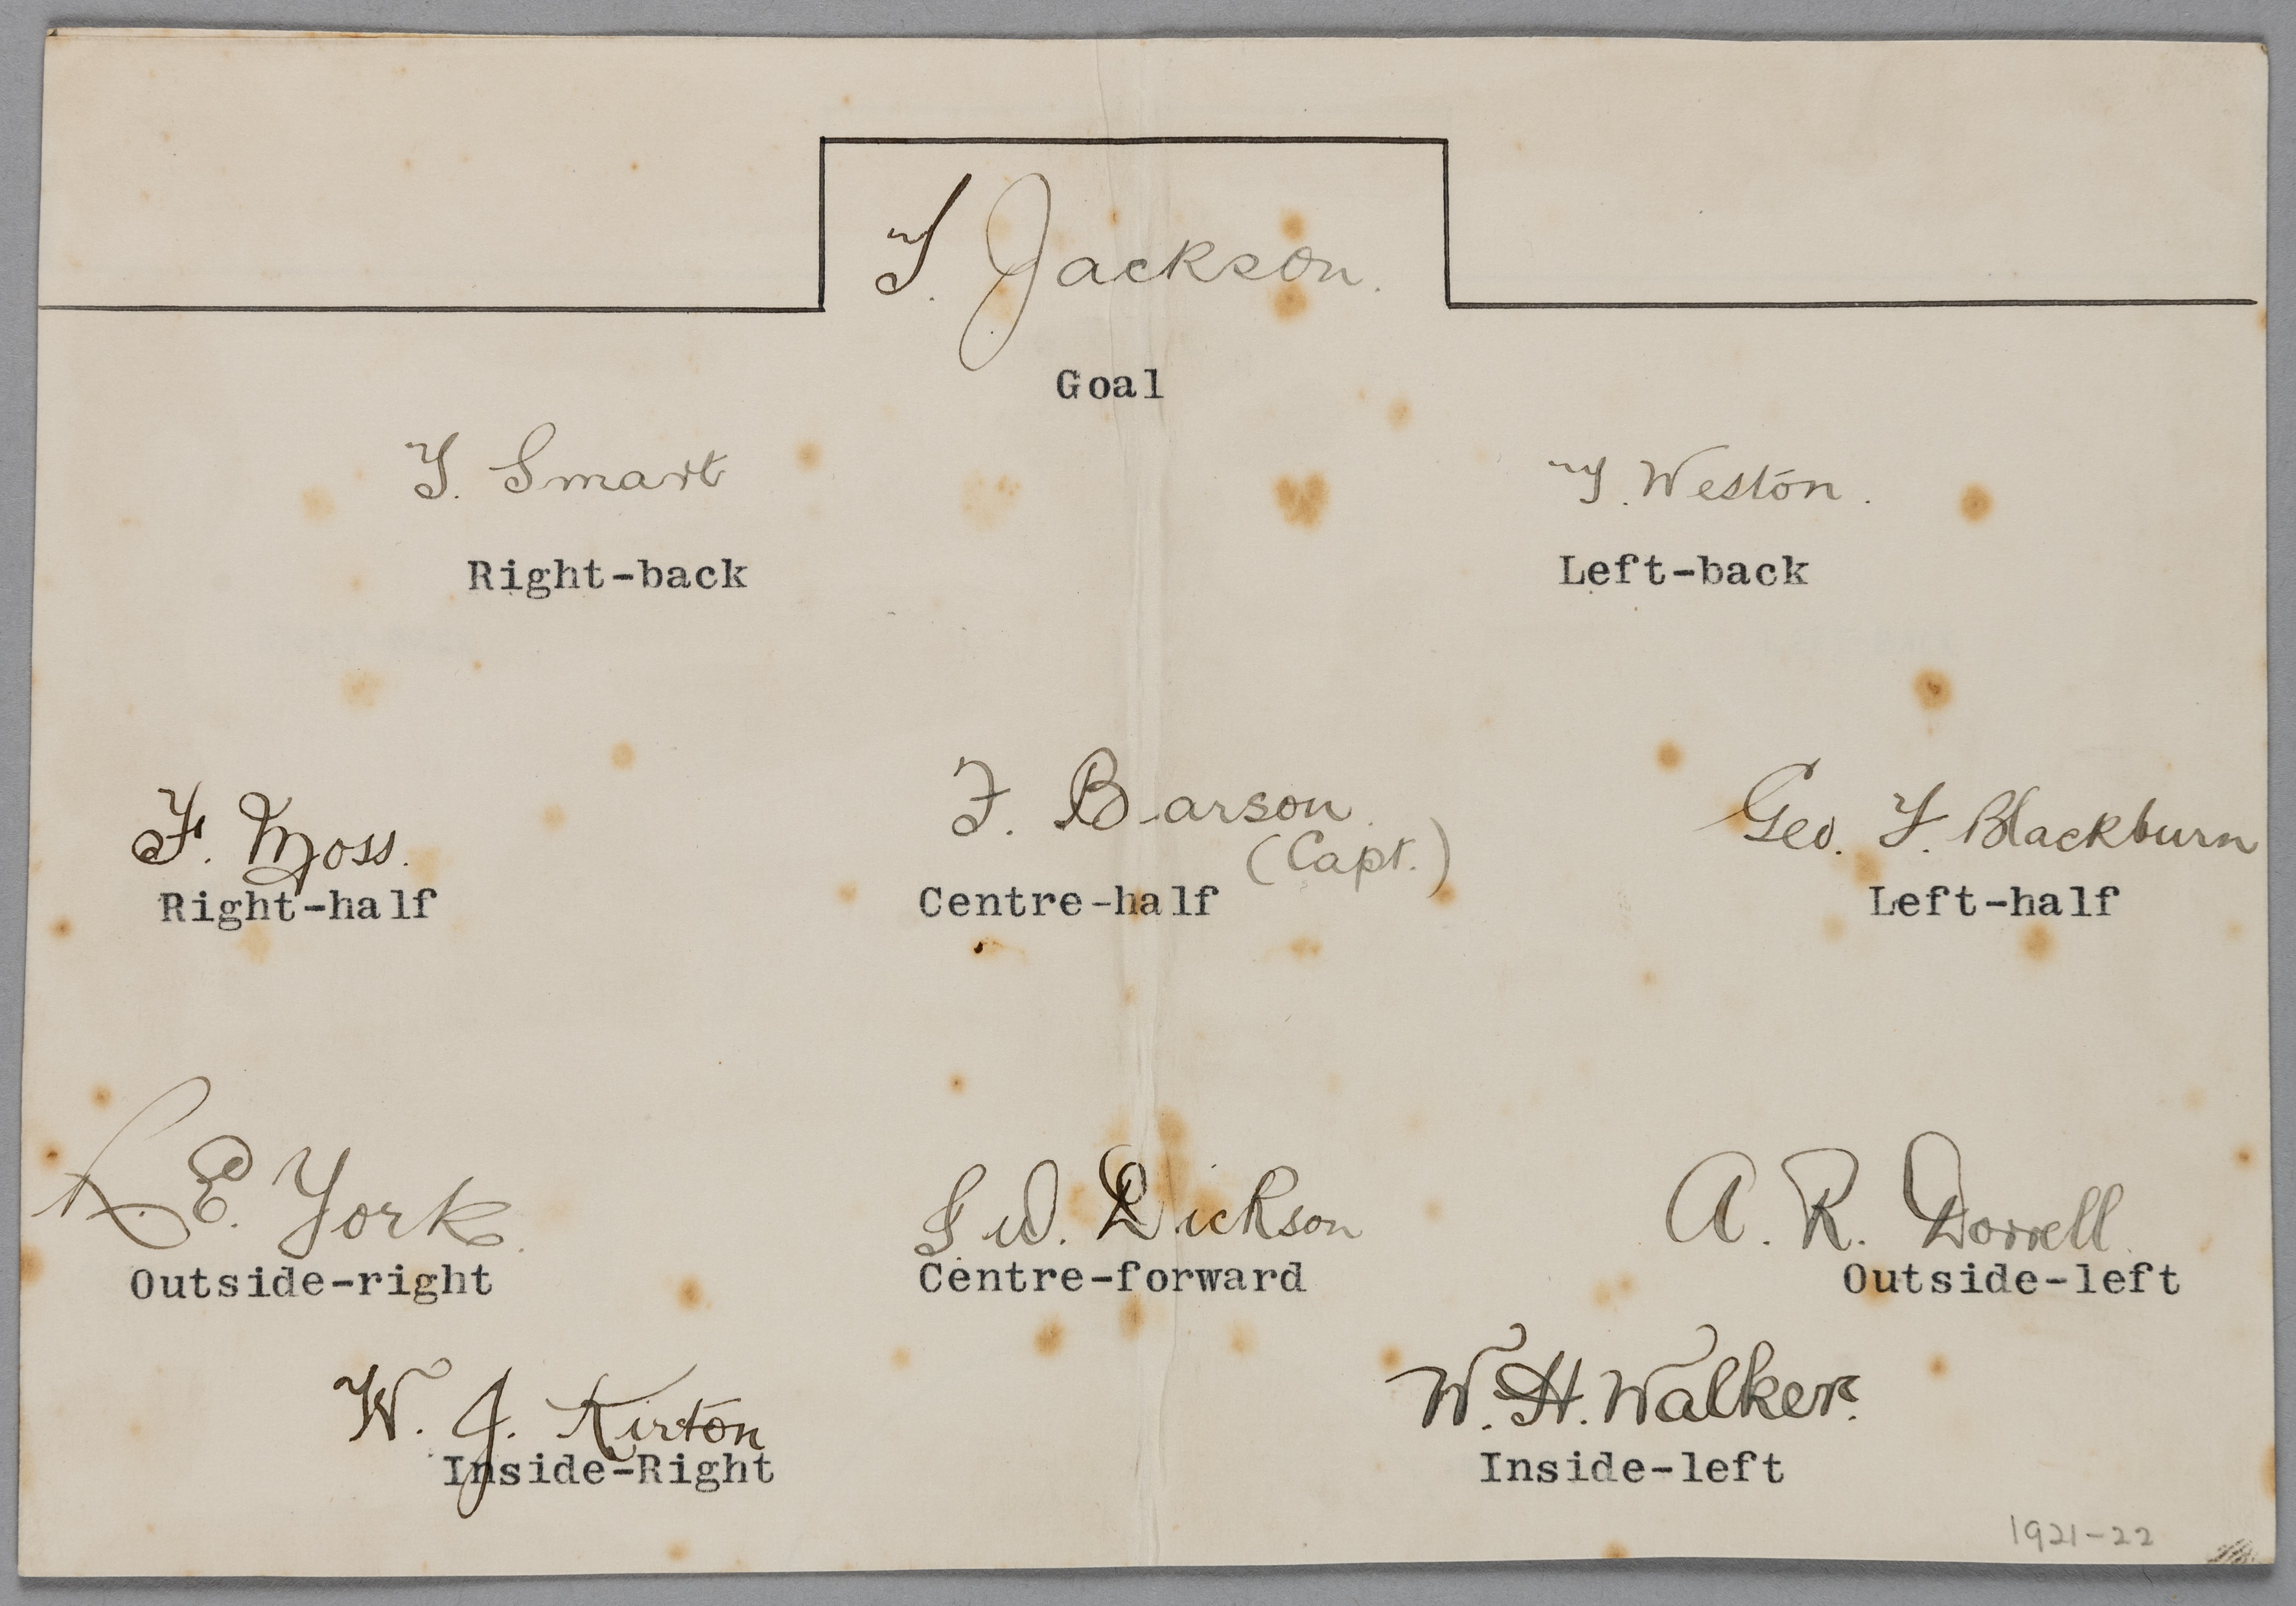 T. Jackson.
Goal
T. Smart
T. Weston.
Right-back
Left-back
F. Moss.
F. Barson
(Capt.)
Geo. F. Blackburn
Right-half
Centre-half
Left-half
R. E. York.
W. Dickson
A. R. Dorrell.
Outside-right
Centre-forward
Outside-left
W. J. Kirton
W. H. Walker.
Inside-Right
Inside-left
1921-22